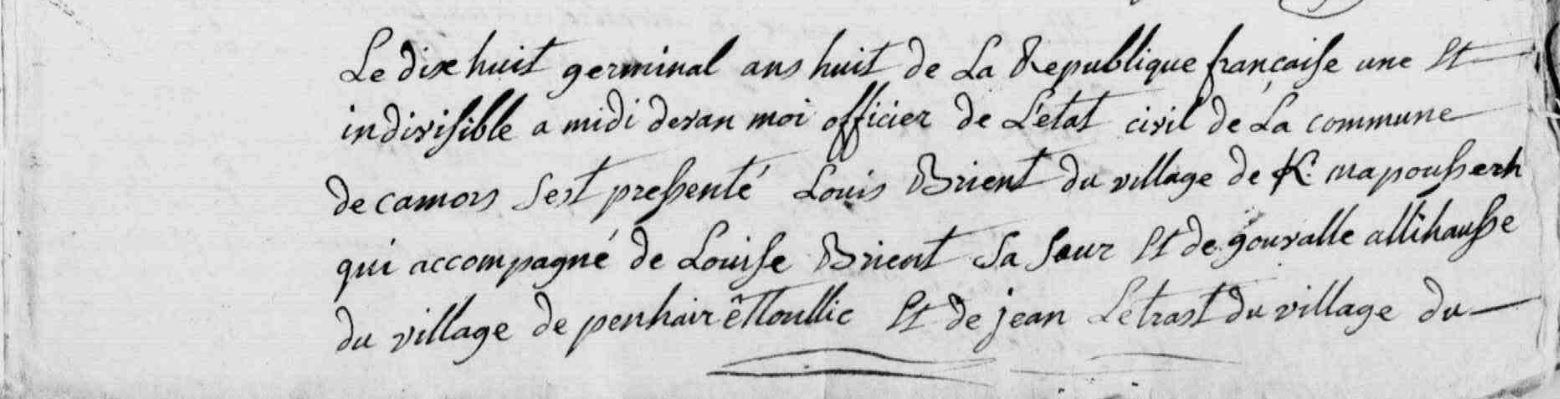 Le dixhuit germinal ans huit de La Republique francaise une Et
indivisible a midi devan moi officier de L'état civil de La commune
de camors sest pressenté Louis Brient du village de K. mapousserh
qui accompagné de Louise Brient Sa Sour Et de gouvalle allihausse
du village de penhair êttoullic Et de jean Letrast du village du